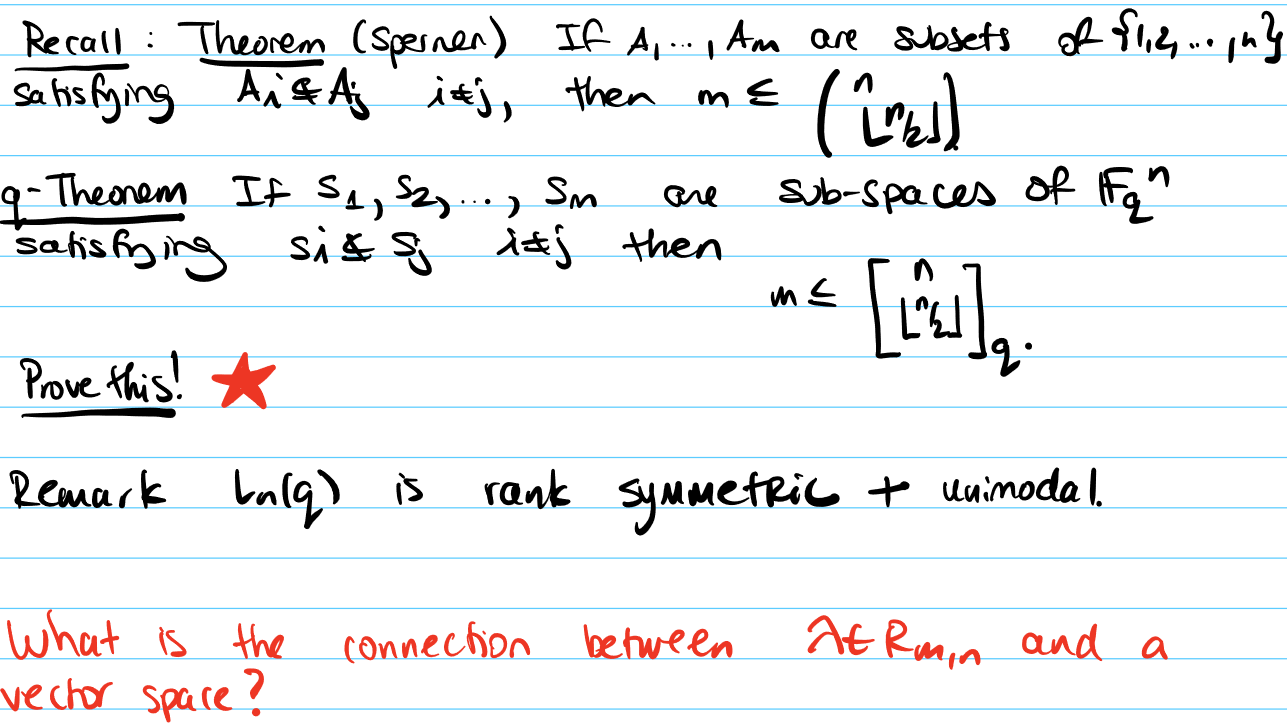 Recall : Theorem (Sperner) If A₁, ..., Aₘ are subsets of {1,2, ..., n}
satisfying Aᵢ ⊈ Aⱼ i≠j, then m ≤ (n ⌊n/2⌋).
q-Theorem If S₁, S₂, ..., Sₘ are sub-spaces of 𝔽qⁿ
satisfying Sᵢ ⊈ Sⱼ i≠j then
m ≤ [n ⌊n/2⌋]q.
Prove this! ★
Remark Ln(q) is rank symmetric + unimodal.
What is the connection between λ∈Rm,n and a
vector space?